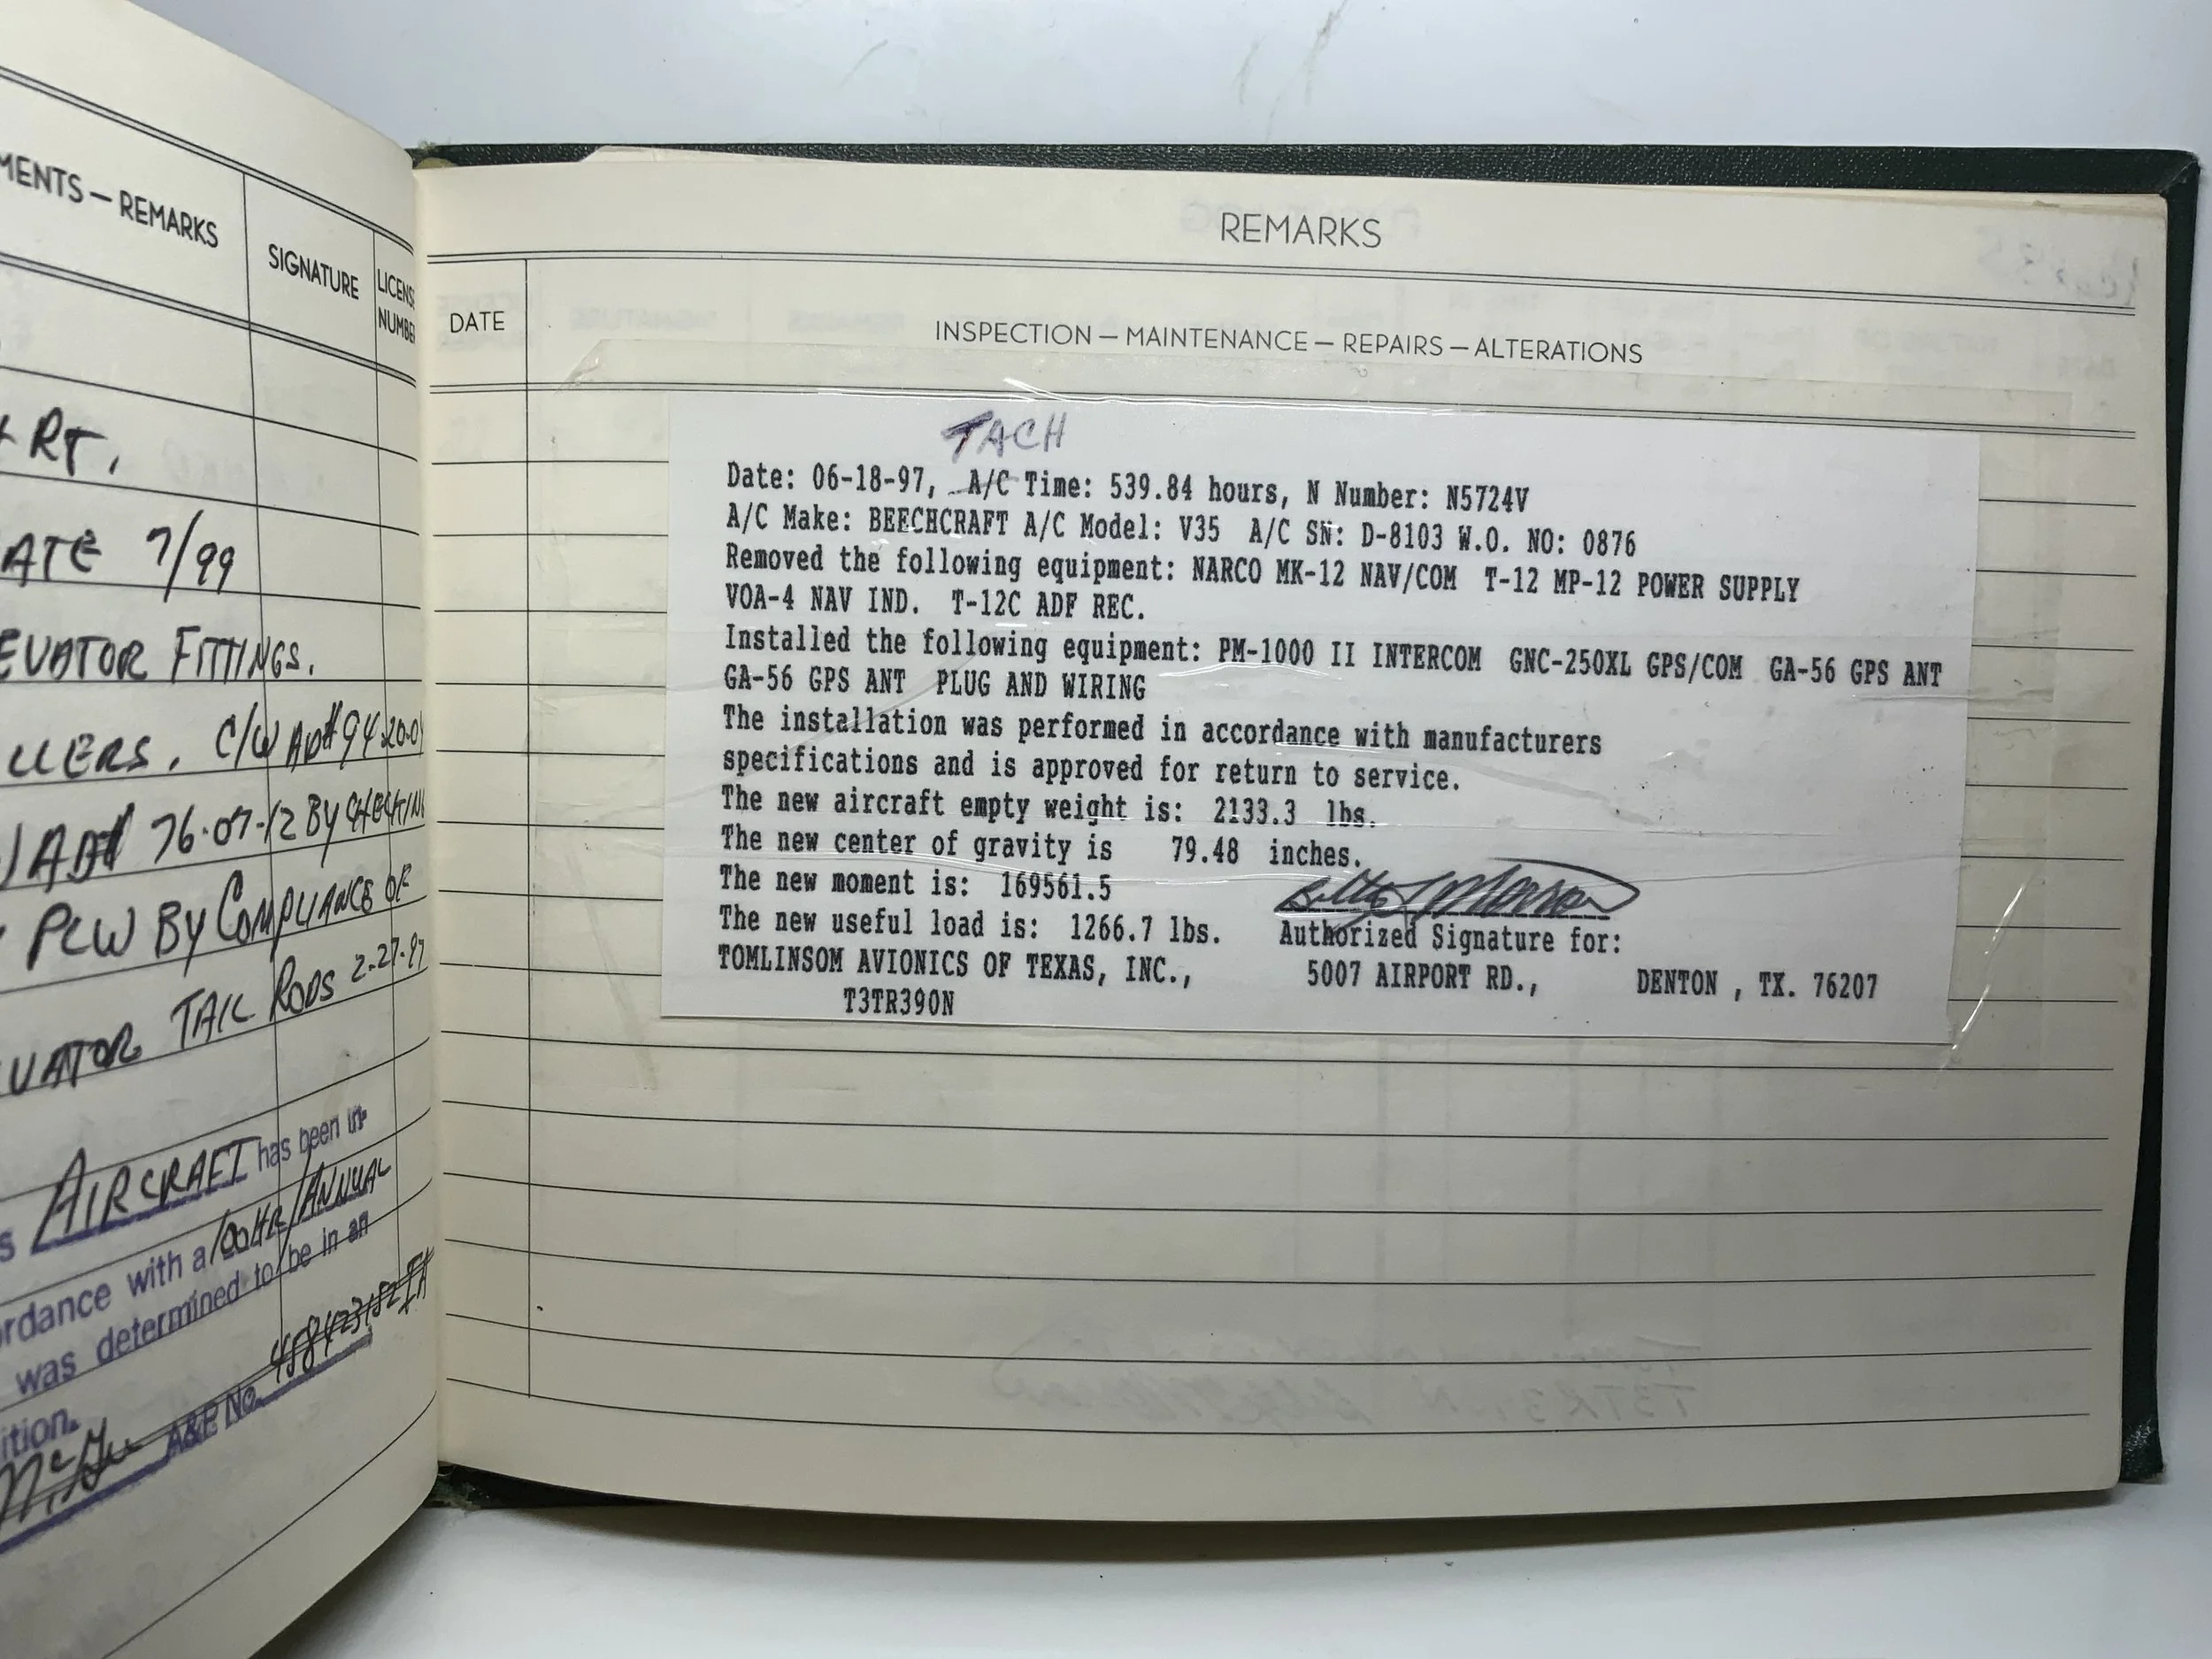 MENTS — REMARKS
SIGNATURE
LICENS
NUMBE
RT.
ATE 7/99
EVATOR FITTINGS.
LLERS. C/W AD# 94-20-0
AD# 76-07-12 BY CHECKING
PCW BY COMPLIANCE OF
VATOR TAIL RODS 2-27-97
S AIRCRAFT has been in-
ordance with a 100HR/ANNUAL
was determined to be in an
ition.
A&P No. 458423182IA
REMARKS
DATE
INSPECTION — MAINTENANCE — REPAIRS — ALTERATIONS
TACH
Date: 06-18-97, A/C Time: 539.84 hours, N Number: N5724V
A/C Make: BEECHCRAFT A/C Model: V35 A/C SN: D-8103 W.O. NO: 0876
Removed the following equipment: NARCO MK-12 NAV/COM T-12 MP-12 POWER SUPPLY
VOA-4 NAV IND. T-12C ADF REC.
Installed the following equipment: PM-1000 II INTERCOM GNC-250XL GPS/COM GA-56 GPS ANT
GA-56 GPS ANT PLUG AND WIRING
The installation was performed in accordance with manufacturers
specifications and is approved for return to service.
The new aircraft empty weight is: 2133.3 lbs.
The new center of gravity is 79.48 inches.
The new moment is: 169561.5
The new useful load is: 1266.7 lbs. Authorized Signature for:
TOMLINSOM AVIONICS OF TEXAS, INC., 5007 AIRPORT RD., DENTON , TX. 76207
T3TR390N